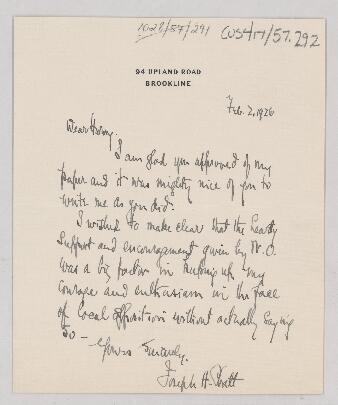 1028/57/291
CUS417/57.292
94 UPLAND ROAD
BROOKLINE
Feb. 2, 1926
Dear Henry.
I am glad you approved of my
paper and it was mighty nice of you to
write me as you did.
I wished to make clear that the hearty
support and encouragement given by W. O.
was a big factor in keeping up my
courage and enthusiasm in the face
of local opposition without actually saying
so —
Yours Sincerely,
Joseph H. Pratt